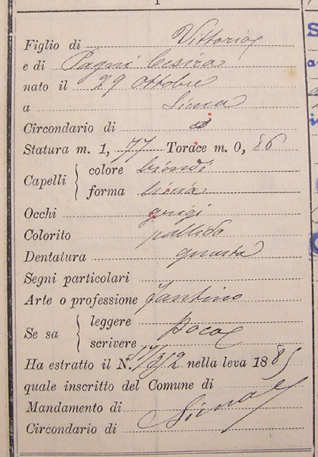 Figlio di Vittorio
e di Pagni Cesira
nato il 29 Ottobre
a Siena
Circondario di
Statura m. 1, 77 Torace m. 0, 86
Capelli { colore biondi
forma liscia
Occhi grigi
Colorito pallido
Dentatura guasta
Segni particolari
Arte o professione Fantino
Se sa { leggere poco
scrivere
Ha estratto il N. nella leva 1885
quale inscritto del Comune di
Mandamento di
Circondario di Siena